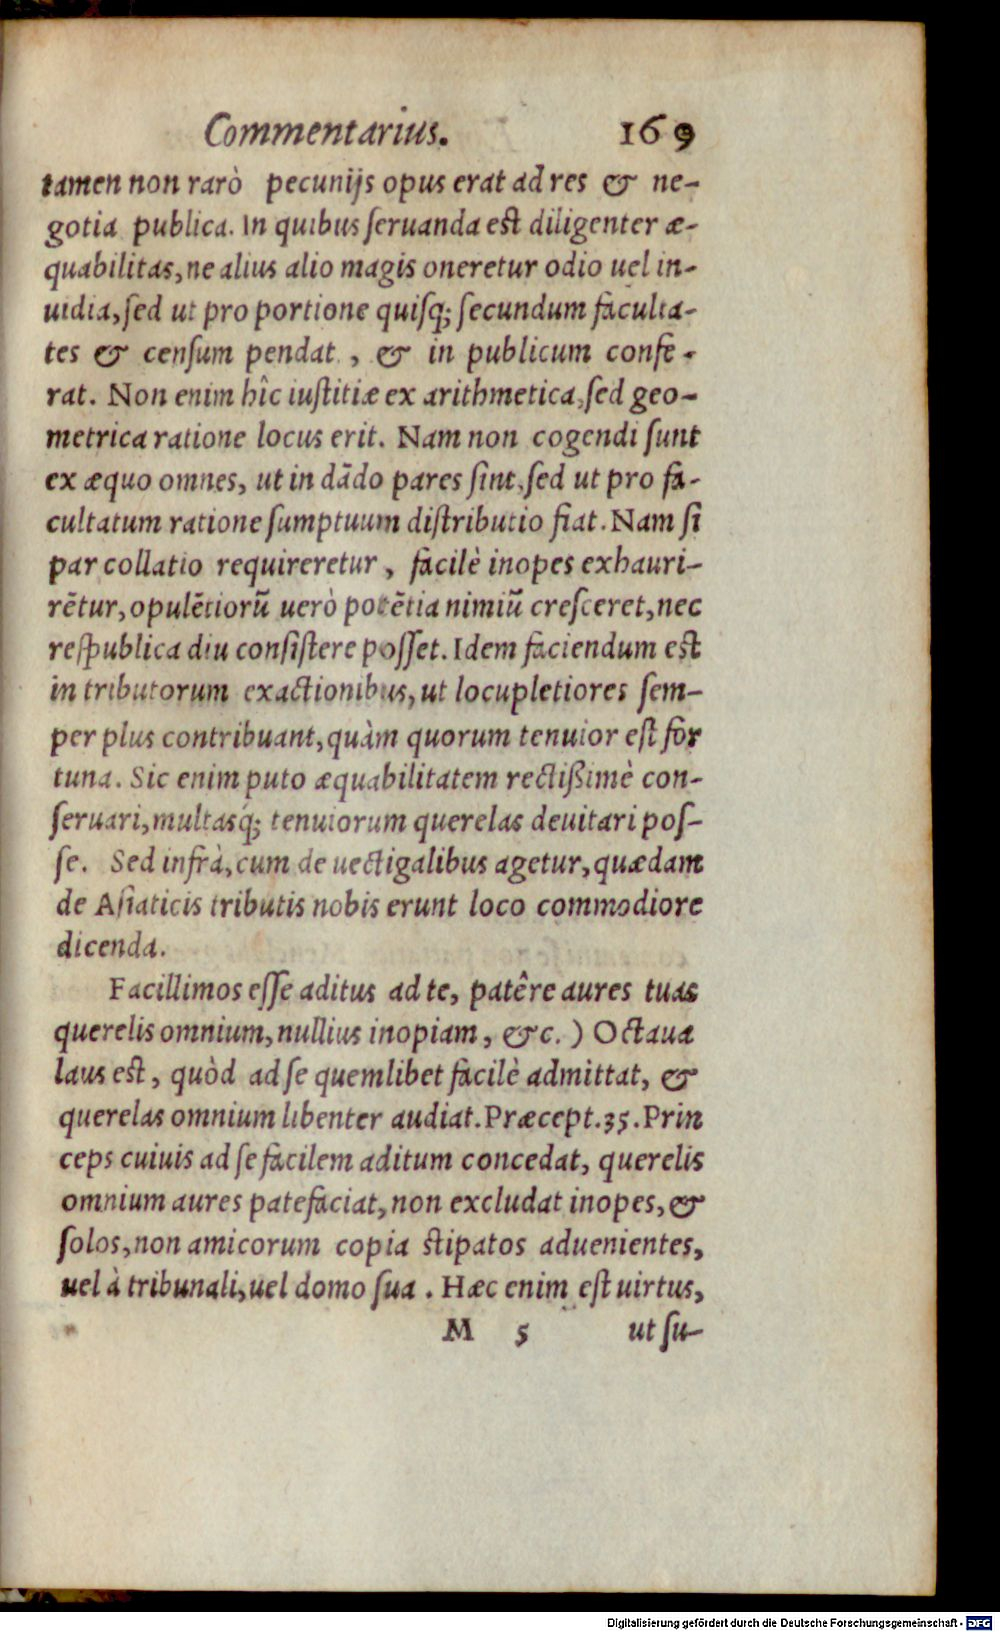 Commentarius. 169
tamen non rarò pecunijs opus erat ad res & ne-
gotia publica. In quibus ſeruanda est diligenter æ-
quabilitas, ne alius alio magis oneretur odio uel in-
uidia, ſed ut pro portione quiſq; ſecundum faculta-
tes & cenſum pendat, & in publicum confe-
rat. Non enim hîc iuſtitiæ ex arithmetica, ſed geo-
metrica ratione locus erit. Nam non cogendi ſunt
ex æquo omnes, ut in dādo pares ſint, ſed ut pro fa-
cultatum ratione ſumptuum diſtributio fiat. Nam ſi
par collatio requireretur, facilè inopes exhauri-
rētur, opulētiorū uerò potētia nimiū creſceret, nec
reſpublica diu conſiſtere poſſet. Idem faciendum est
in tributorum exactionibus, ut locupletiores ſem-
per plus contribuant, quàm quorum tenuior eſt for
tuna. Sic enim puto æquabilitatem rectißimè con-
ſeruari, multasq́; tenuiorum querelas deuitari poſ-
ſe. Sed infrà, cum de uectigalibus agetur, quædam
de Aſiaticis tributis nobis erunt loco commodiore
dicenda.
Facillimos eſſe aditus ad te, patêre aures tuas
querelis omnium, nullius inopiam, &c.) Octaua
laus est, quòd ad ſe quemlibet facilè admittat, &
querelas omnium libenter audiat. Præcept. 35. Prin
ceps cuiuis ad ſe facilem aditum concedat, querelis
omnium aures patefaciat, non excludat inopes, &
ſolos, non amicorum copia stipatos aduenientes,
uel à tribunali, uel domo ſua. Hæc enim eſt uirtus,
M 5 ut ſu-
Digitalisierung gefördert durch die Deutsche Forschungsgemeinschaft - DFG